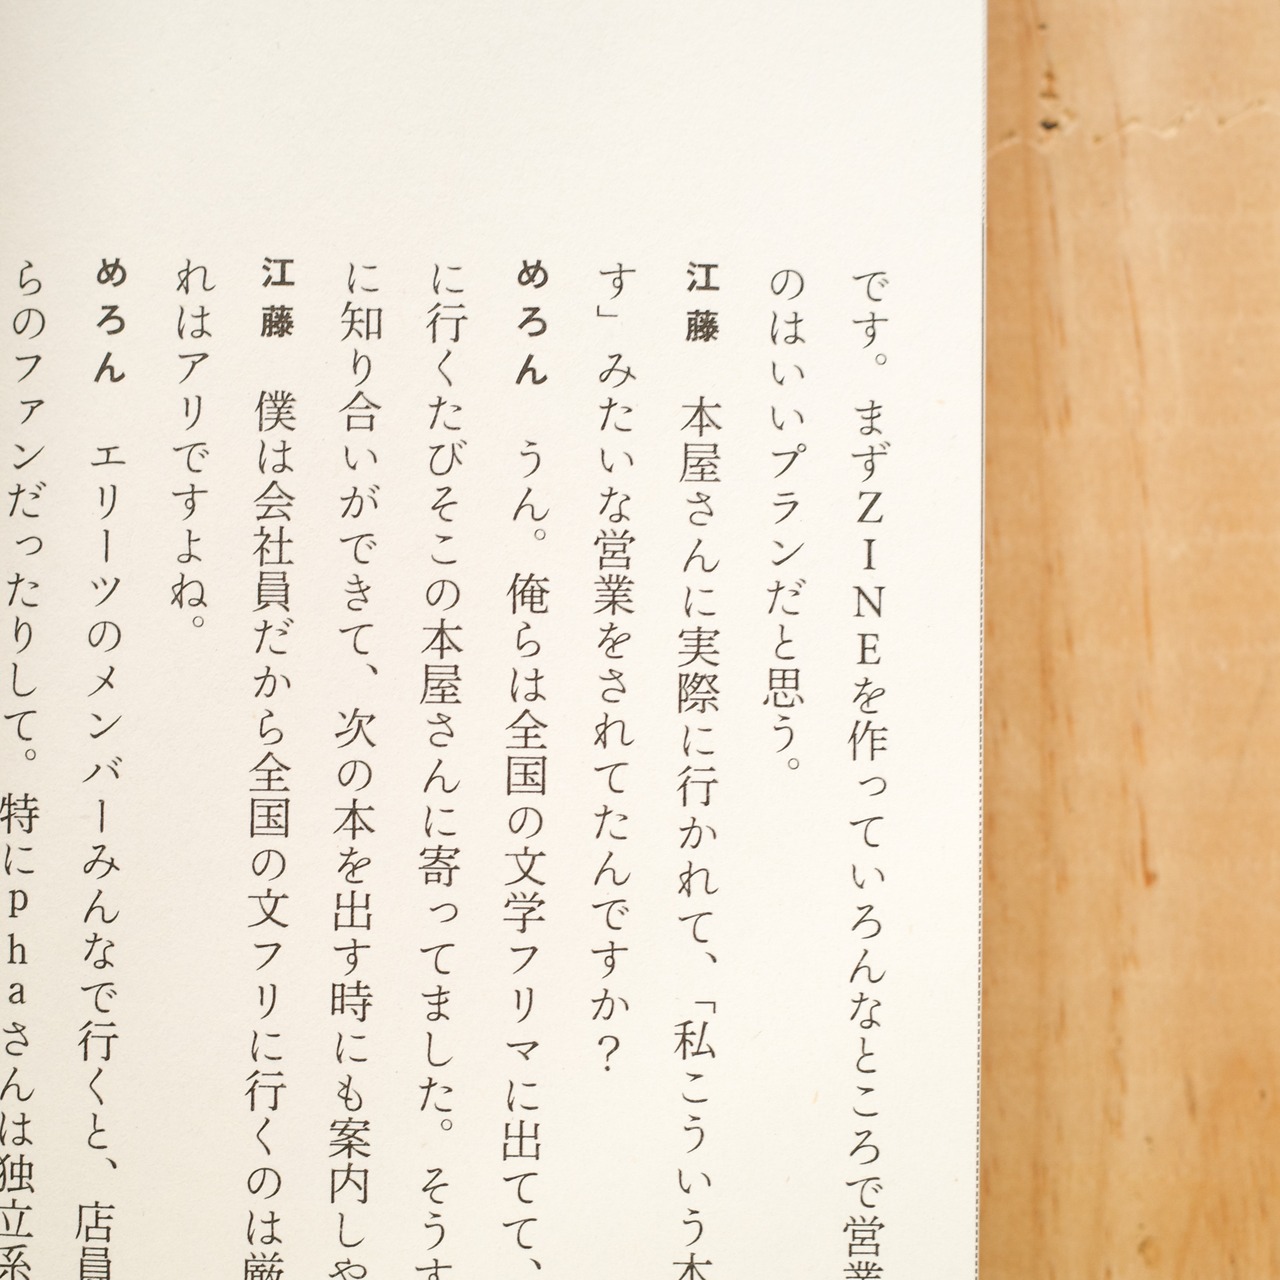 です。まずZINEを作っていろんなところで営業
のはいいプランだと思う。
江藤　本屋さんに実際に行かれて、「私こういう本
す」みたいな営業をされてたんですか？
めろん　うん。俺らは全国の文学フリマに出てて、
に行くたびそこの本屋さんに寄ってました。そうす
に知り合いができて、次の本を出す時にも案内しや
江藤　僕は会社員だから全国の文フリに行くのは厳
れはアリですよね。
めろん　エリーツのメンバーみんなで行くと、店員
らのファンだったりして。特にphaさんは独立系